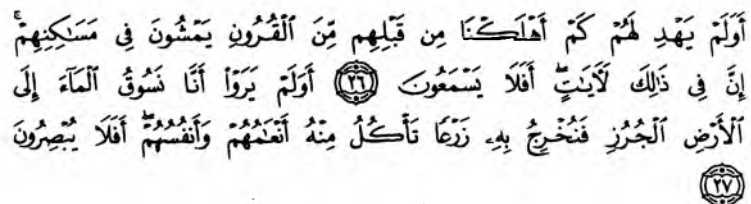 أَوَلَمْ يَهْدِ لَهُمْ كَمْ أَهْلَكْنَا مِن قَبْلِهِم مِّنَ ٱلْقُرُونِ يَمْشُونَ فِى مَسَـٰكِنِهِمْ ۚ
إِنَّ فِى ذَٰلِكَ لَـَٔايَـٰتٍ ۖ أَفَلَا يَسْمَعُونَ ٢٦ أَوَلَمْ يَرَوْا۟ أَنَّا نَسُوقُ ٱلْمَآءَ إِلَى
ٱلْأَرْضِ ٱلْجُرُزِ فَنُخْرِجُ بِهِۦ زَرْعًا تَأْكُلُ مِنْهُ أَنْعَـٰمُهُمْ وَأَنفُسُهُمْ ۖ أَفَلَا يُبْصِرُونَ
٢٧